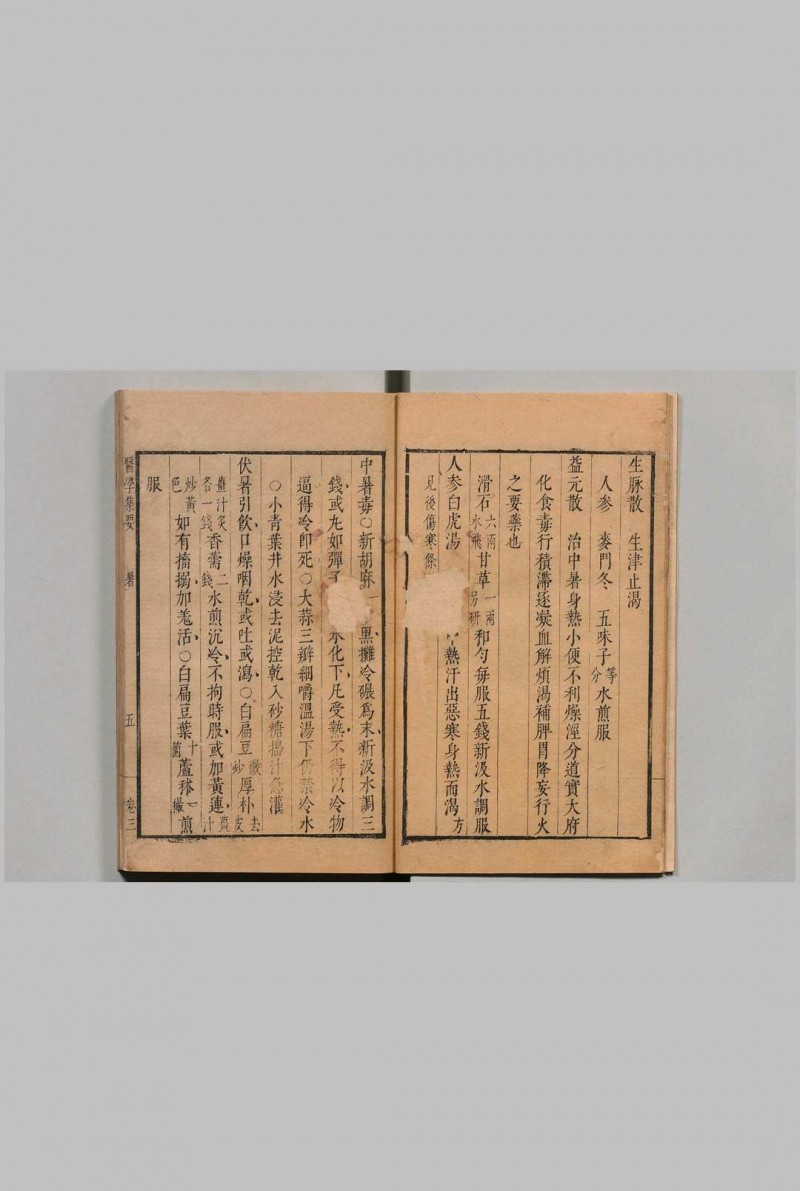 生脉散　生津止渴
人參　麥門冬　五味子等分水煎服
益元散　治中暑身熱小便不利燥溼分道實大府
化食毒行積滯逐凝血解煩渴補脾胃降妄行火
之要藥也
滑石六兩水飛甘草一兩另研和勻每服五錢新汲水調服
人參白虎湯　熱汗出惡寒身熱而渴方
見後傷寒條
中暑毒○新胡麻一　黑攤冷碾爲末新汲水調三
錢或丸如彈子　水化下凡受熱不得以冷物
逼得冷卽死○大蒜三瓣細嚼溫湯下仍禁冷水
○小青葉井水浸去泥控乾入砂糖搗汁急灌
伏暑引飲口燥咽乾或吐或瀉○白扁豆微炒厚朴去皮
薑汁炙各一錢香薷二錢水煎沉冷不拘時服或加黃連薑汁
炒黃色如有搐搦加羗活○白扁豆葉十箇蘆穄一撮煎
服
醫學集要　暑　五　卷三